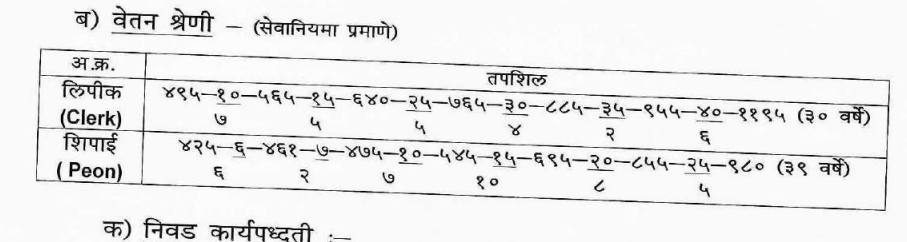 ब) वेतन श्रेणी – (सेवानियमा प्रमाणे)
अ.क्र. तपशिल
लिपीक ४९५–१०–५६५–१५–६४०–२५–७६५–३०–८८५–३५–९५५–४०–११९५ (३० वर्षे)
(Clerk) ७ ५ ५ ४ २ ६
शिपाई ४२५–६–४६१–७–४७५–१०–५४५–१५–६९५–२०–८५५–२५–९८० (३९ वर्षे)
( Peon) ६ २ ७ १० ८ ५
क) निवड कार्यपध्दती :–